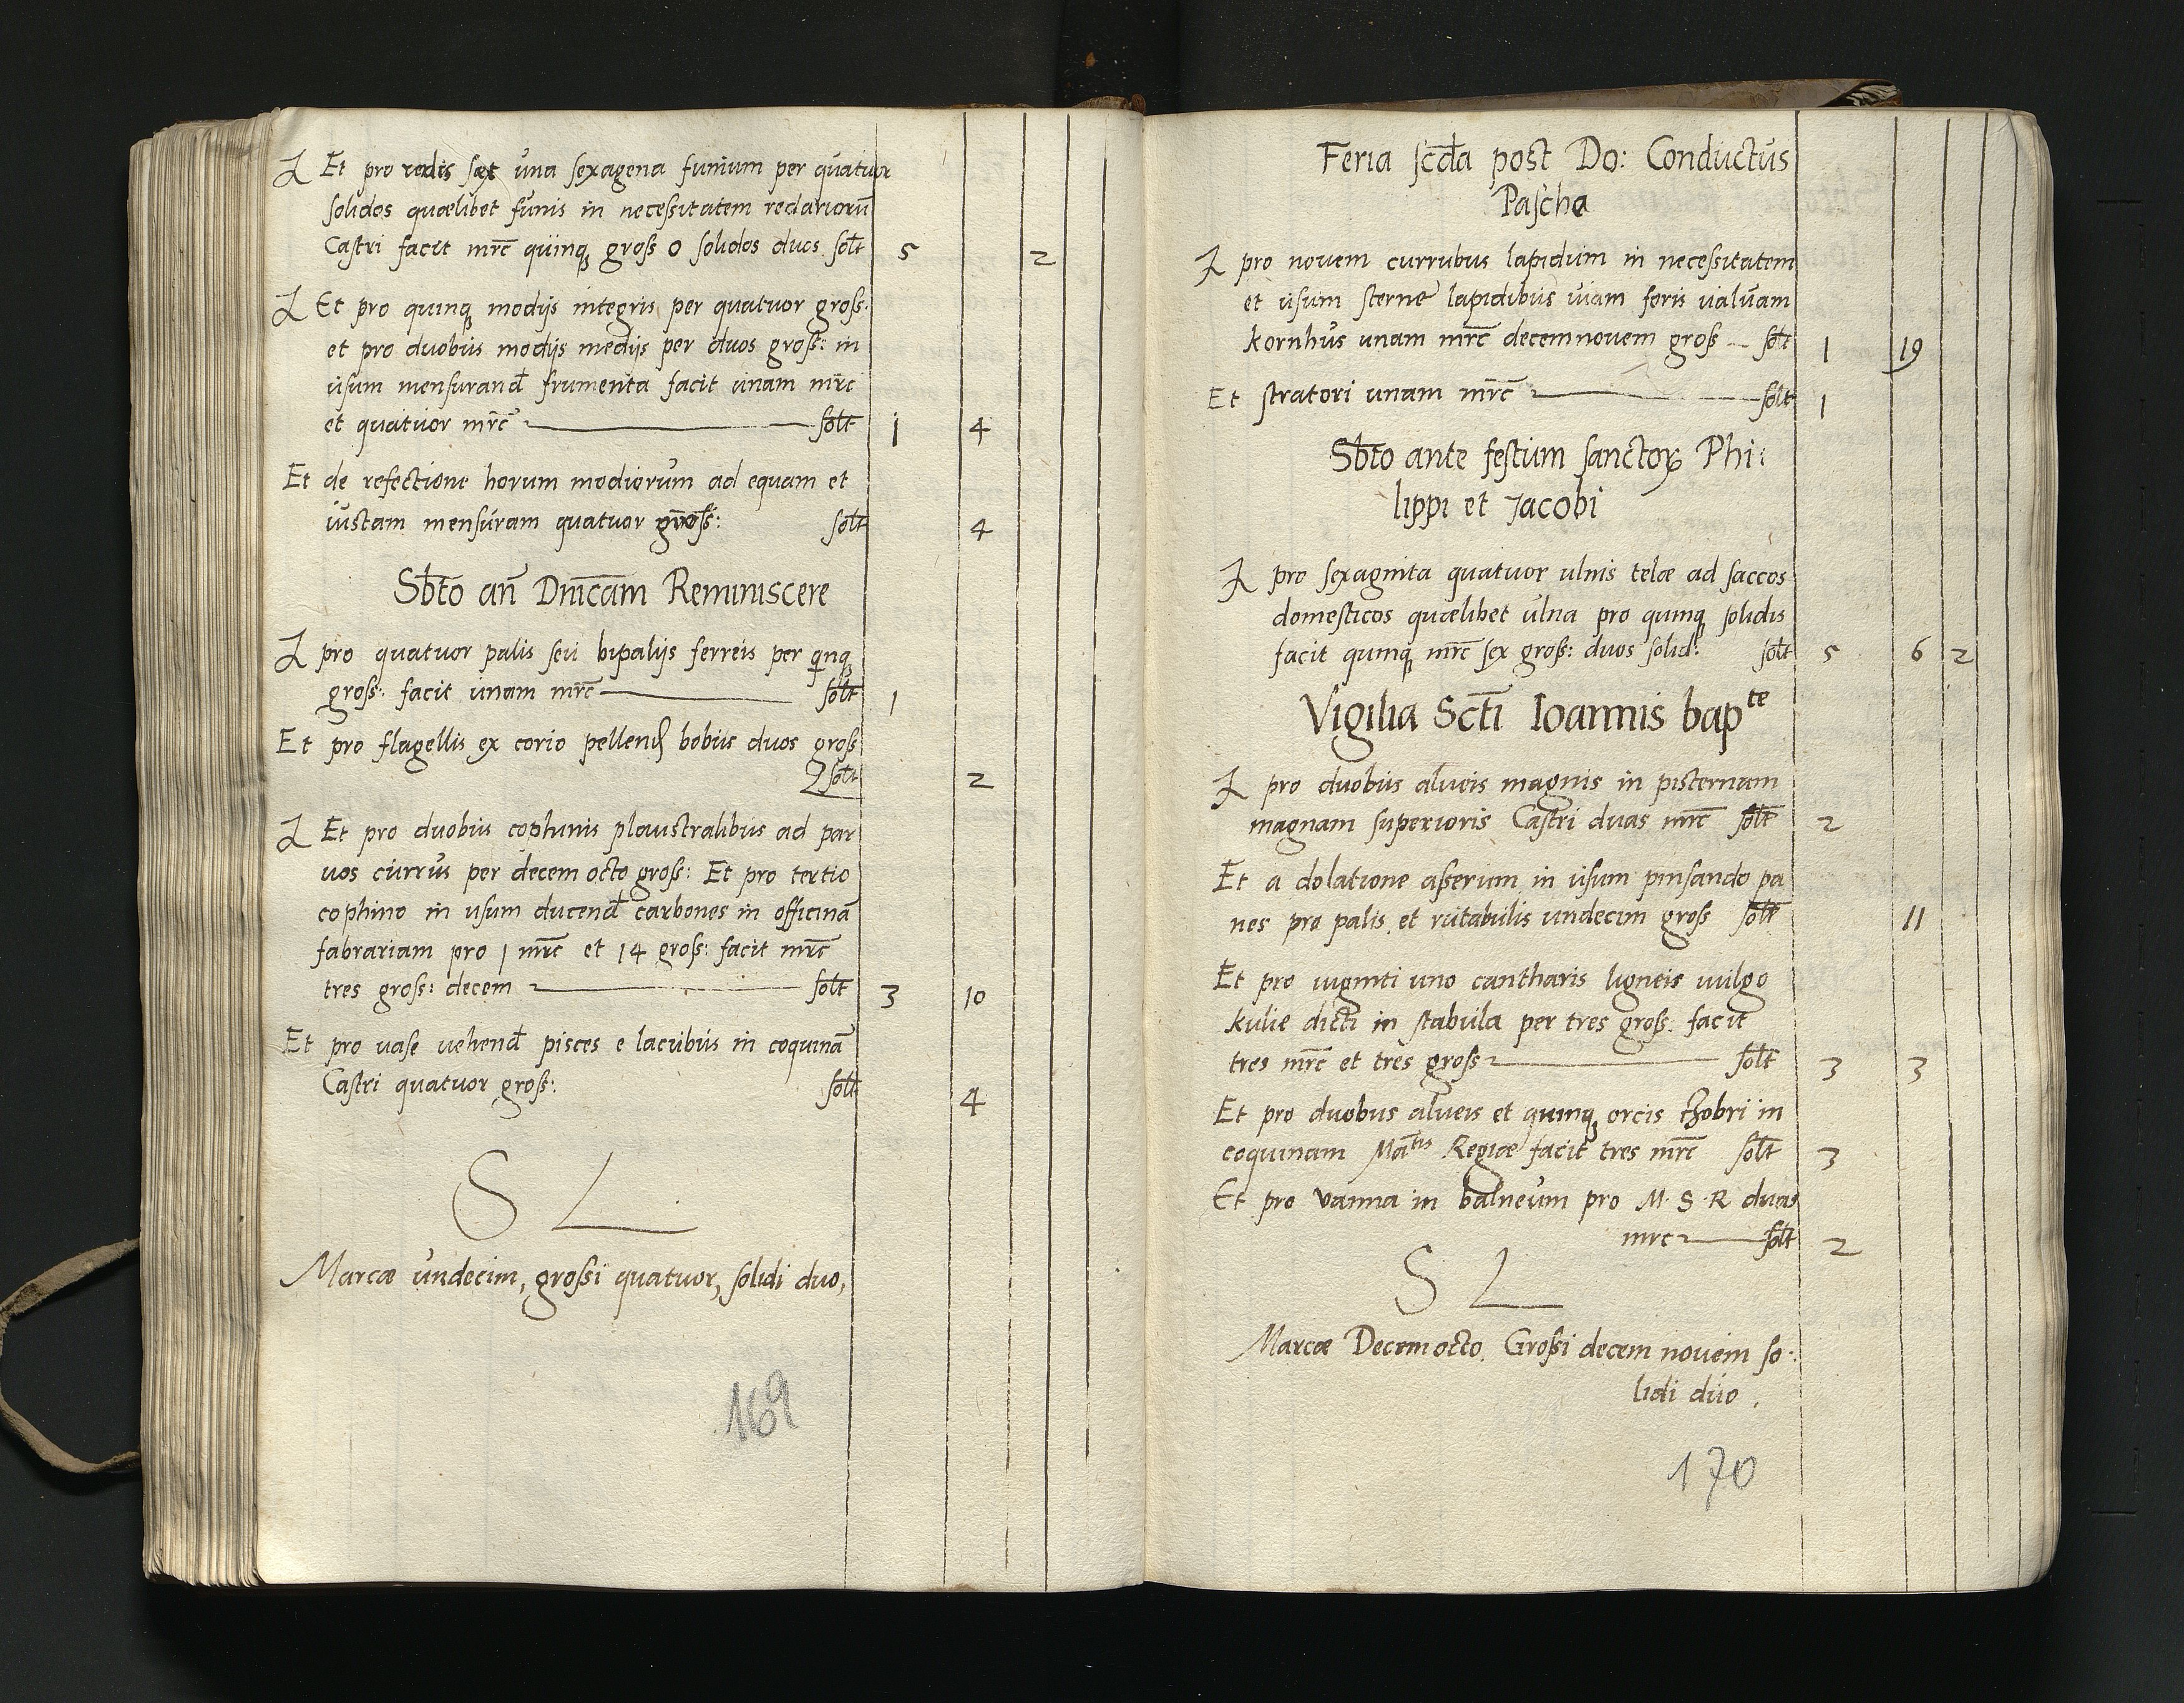 Et pro redis sex una sexagena funium per quatuor
solidos quælibet funis in necessitatem redariorū
Castri facit mrc quinq gross 0 solidos duos solt 5 2
Et pro quinq modijs integris per quatuor gross:
et pro duobus modijs medijs per duos gross: in
usum mensurand frumenta facit unam mrc
et quatuor mrc solt 1 4
Et de refectione horum modiorum ad equam et
iustam mensuram quatuor gross: solt 4
Sbto an Dnicam Reminiscere
pro quatuor palis seu bipalijs ferreis per qinq
gross: facit unam mrc solt 1
Et pro flagellis ex corio pellend bobus duos gross
solt 2
Et pro duobus cophinis plaustralibus ad par
uos currus per decem octo gross: Et pro tertio
cophino in usum ducend carbones in officinā
fabrariam pro 1 mrc et 14 gross: facit mrc
tres gross: decem solt 3 10
Et pro uase uehend pisces e lacubus in coquinā
Castri quatuor gross: solt 4
S L
Marcæ undecim, grossi quatuor, solidi duo,
169
Feria scda post Do: Conductus
Pascha
pro novem currubus lapidum in necessitatem
et usum sterne lapidibus uiam foris ualuam
kornhus unam mrc decemnovem gross solt 1 19
Et stratori unam mrc solt 1
Sbto ante festum sanctor Phi:
lippi et Jacobi
pro sexaginta quatuor ulnis telæ ad saccos
domesticos quælibet ulna pro quinq solidis
facit quinq mrc sex gross: duos solid: solt 5 6 2
Vigilia Scti Ioannis bapte
pro duobus alueis magnis in pisternam
magnam superioris Castri duas mrc solt 2
Et a dolatione asserum in usum pinsando pa
nes pro palis et rutabulis undecim gross solt 11
Et pro uiginti uno cantharis ligneis uulgo
kulie dicti in stabula per tres gross: facit
tres mrc et tres gross solt 3 3
Et pro duobus alueis et quinq orcis czobri in
coquinam Matis Regiæ facit tres mrc solt 3
Et pro vanna in balneum pro M. S. R duas
mrc solt 2
S L
Marcæ Decem octo. Grossi decem novem so:
lidi duo.
170